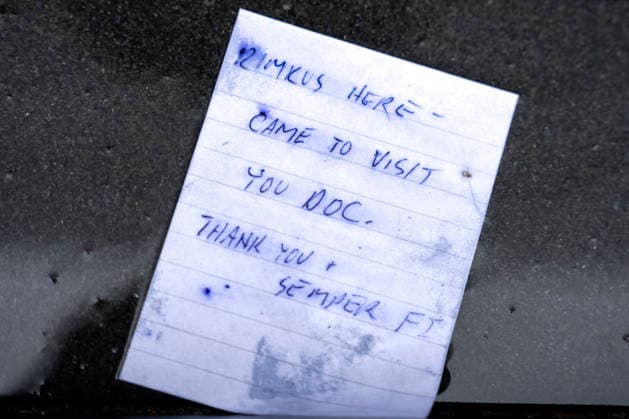 RIMKUS HERE -
CAME TO VISIT
YOU DOC.
THANK YOU +
SEMPER FI